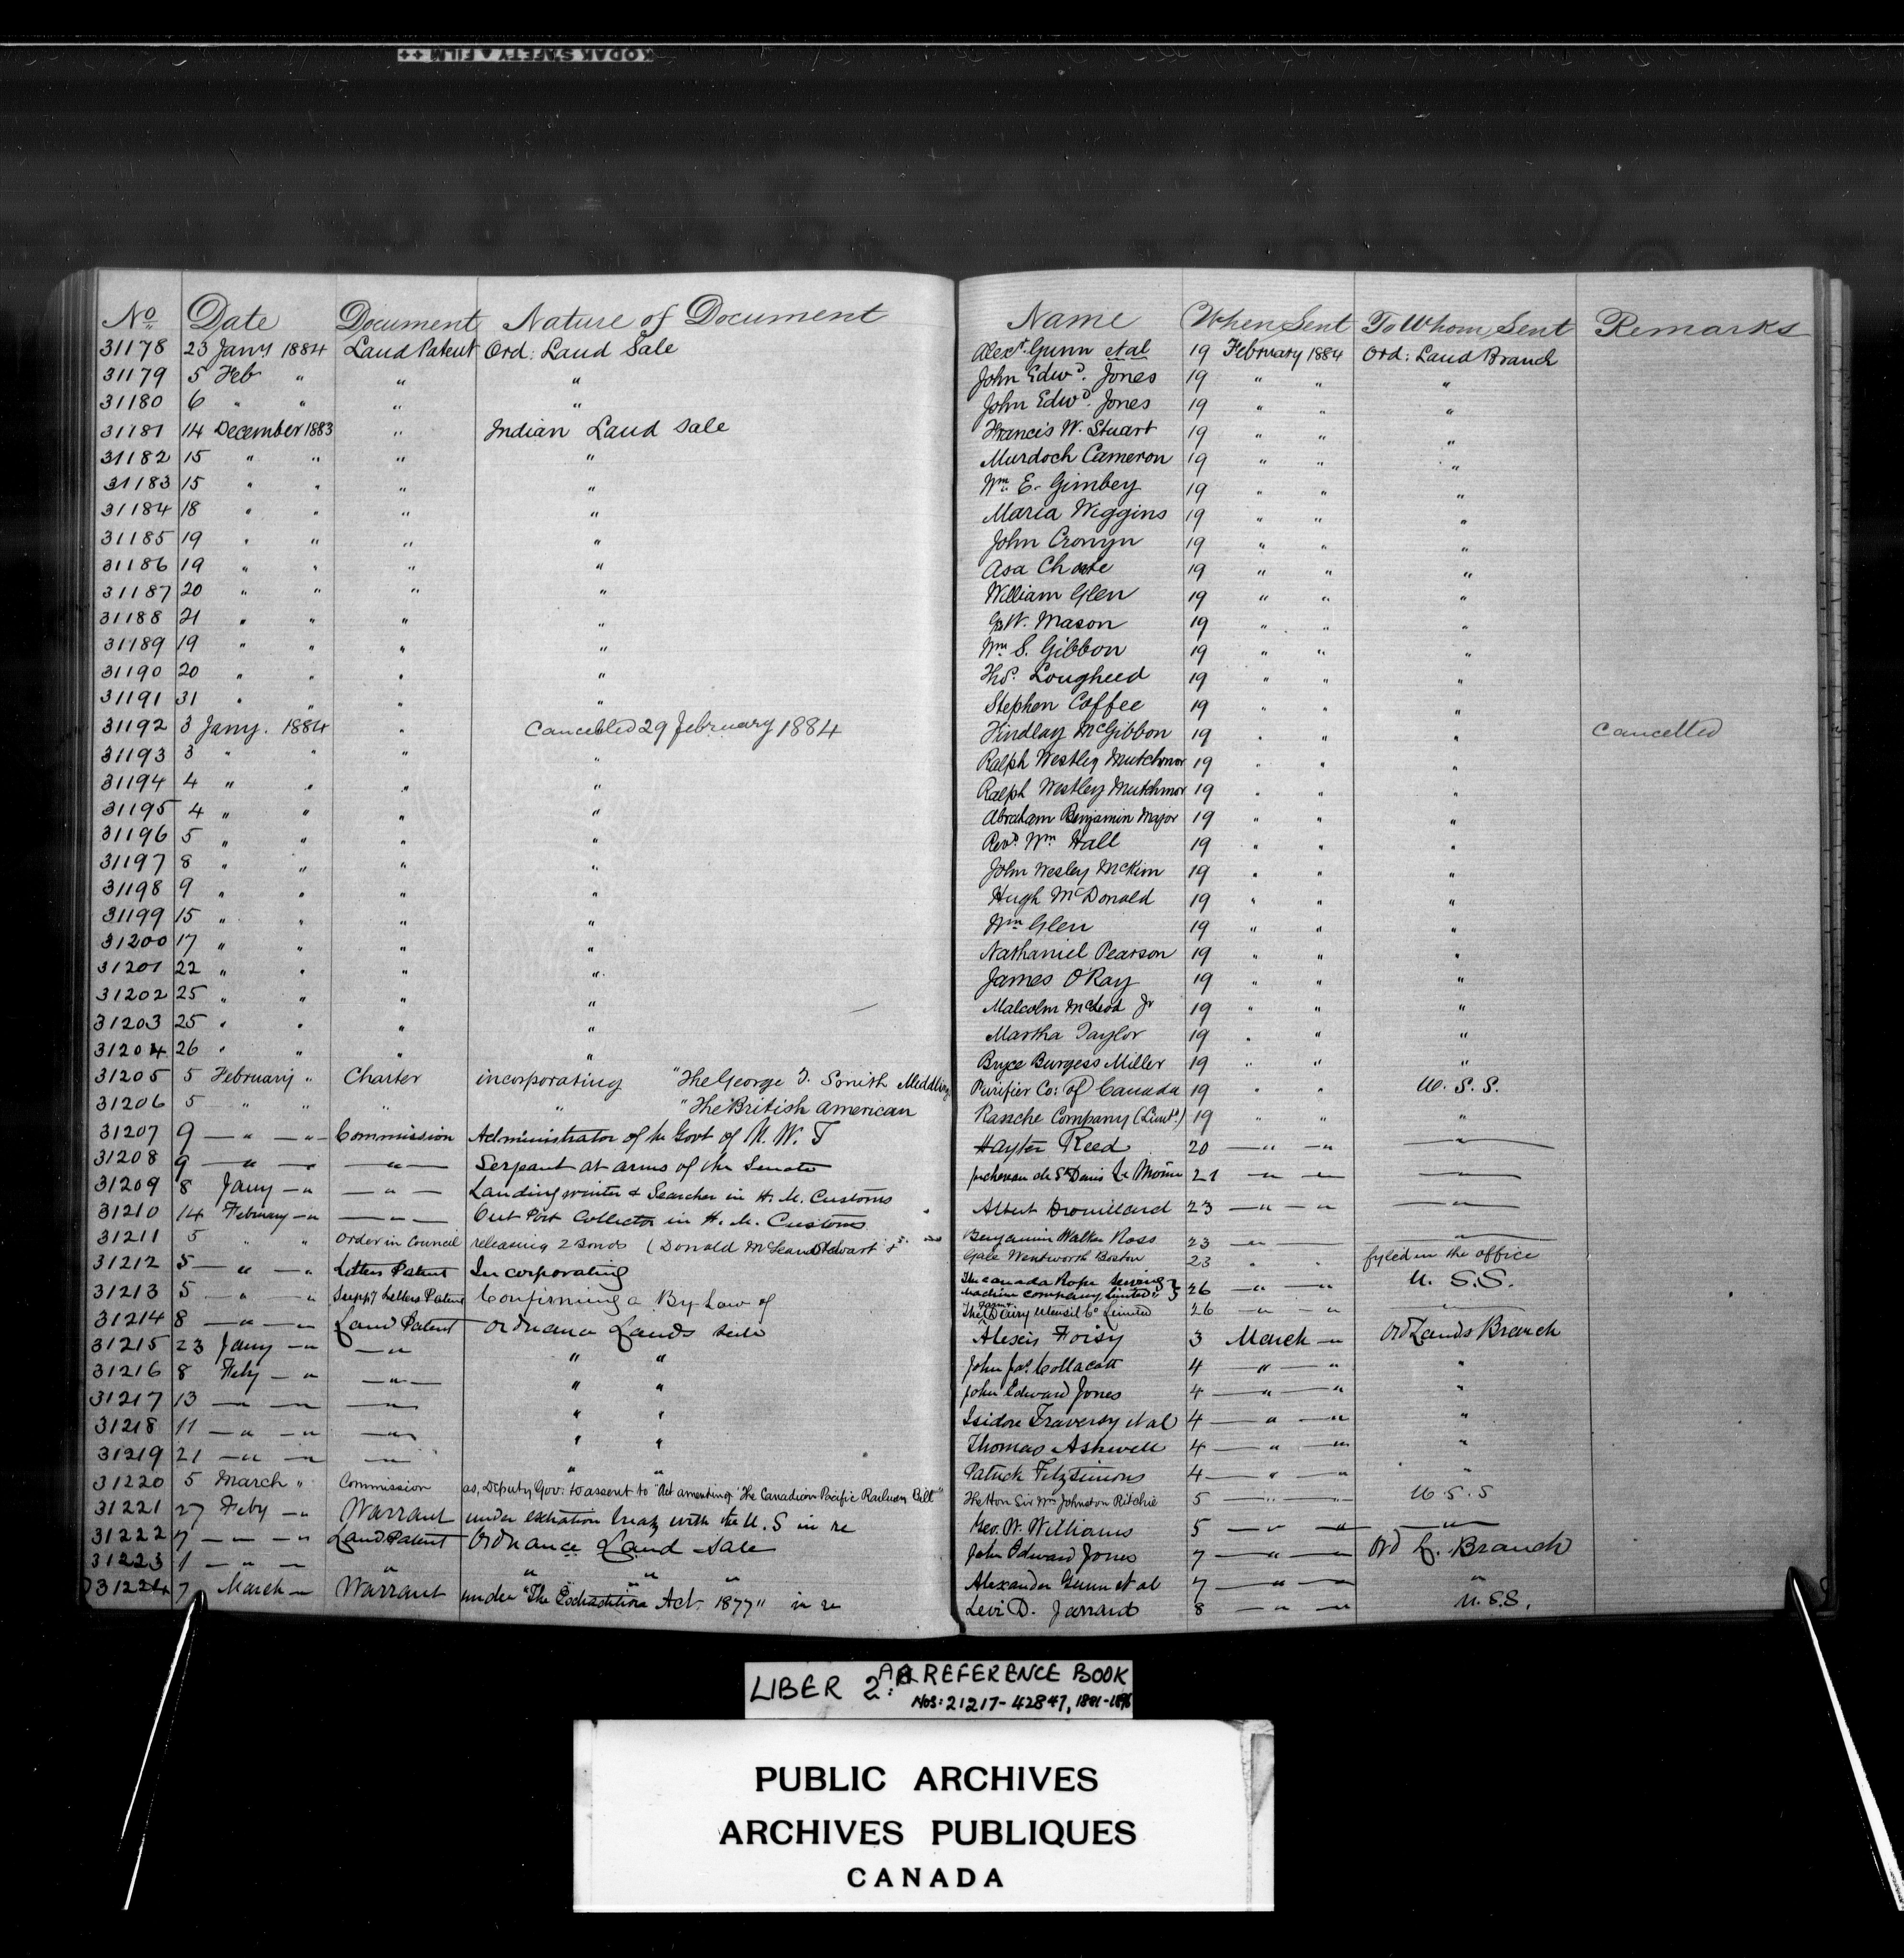 KODAK SAFETY A FILM ++
No Date Document Nature of Document Name When Sent To Whom Sent Remarks
31178 23 Jany 1884 Land Patent Ord: Land Sale Alexr. Gunn et al 19 February 1884 Ord: Land Branch
31179 5 Feb " " " John Edwd. Jones 19 " " "
31180 6 " " " " John Edwd. Jones 19 " " "
31181 14 December 1883 " Indian Land Sale Francis W. Stuart 19 " " "
31182 15 " " " " Murdoch Cameron 19 " " "
31183 15 " " " " Wm. E. Gimbey 19 " " "
31184 18 " " " " Maria Wiggins 19 " " "
31185 19 " " " " John Cronyn 19 " " "
31186 19 " " " " Asa Choate 19 " " "
31187 20 " " " " William Glen 19 " " "
31188 21 " " " " W. Mason 19 " " "
31189 19 " " " " Wm S. Gibbon 19 " " "
31190 20 " " " " Thos. Lougheed 19 " " "
31191 31 " " " " Stephen Coffee 19 " " "
31192 3 Jany. 1884 " Cancelled 29 February 1884 Findlay McGibbon 19 " " " Cancelled
31193 3 " " " " Ralph Westley Mutchmor 19 " " "
31194 4 " " " " Ralph Westley Mutchmor 19 " " "
31195 4 " " " " Abraham Benjamin Major 19 " " "
31196 5 " " " " Revd. Wm Hall 19 " " "
31197 8 " " " " John Wesley McKim 19 " " "
31198 9 " " " " Hugh McDonald 19 " " "
31199 15 " " " " Wm Glen 19 " " "
31200 17 " " " " Nathaniel Pearson 19 " " "
31201 22 " " " " James O'Ray 19 " " "
31202 25 " " " " Malcolm McLeod Jr 19 " " "
31203 25 " " " " Martha Taylor 19 " " "
31204 26 " " " " Bryce Burgess Miller 19 " " "
31205 5 February " Charter incorporating "The George T. Smith Middlings Purifier Co: of Canada 19 " " U. S. S.
31206 5 " " " " "The British American Ranche Company (Limtd.) 19 " " "
31207 9 — " — " Commission Administrator of the Govt of N. W. T Hayter Reed 20 — " — " — " —
31208 9 — " — " — " — Serjeant at arms of the Senate de St Denis Le Moine 21 — " — — " —
31209 8 Jany — " — " — Landing waiter & Searcher in H. M. Customs Albert Drouillard 23 — " — " — " —
31210 14 February — " — " — Out Port Collector in H. M. Customs Benjamin Walker Ross 23 — " — " —
31211 5 " " Order in Council releasing 2 Bonds (Donald McLean Stewart & Gale Wentworth Boston 23 " " fyled in the office
31212 5 — " — " Letters Patent Incorporating The Canada Rope Sewing Machine Company Limited" } 26 — " — " U. S. S.
31213 5 — " — " Suppy Letters Patent Confirming a By Law of The Farm & Dairy Utensil Co Limited 26 — " — " — " —
31214 8 — " — " Land Patent Ordnance Lands sale Alexis Foisy 3 March — " Ord Lands Branch
31215 23 Jany — " — " " " John Jas. Collacott 4 — " — " "
31216 8 Feby — " — " — " " John Edward Jones 4 — " — " "
31217 13 — " — " — " " " Isidore Traversy et al 4 — " — " "
31218 11 — " — " — " " " Thomas Ashwell 4 — " — " "
31219 21 — " — " — " " " Patrick Fitzsimons 4 — " — " "
31220 5 March " Commission as, Deputy Gov: to assent to "Act amending 'The Canadian Pacific Railway Bill" The Hon Sir Wm Johnston Ritchie 5 — " — " U. S. S
31221 27 Feby — " Warrant under extration treaty with the U. S in re Geo. W. Williams 5 — " — " — " —
31222 7 — " — " Land Patent Ordnance Land sale John Edward Jones 7 — " — " Ord L. Branch
31223 1 — " — " " " " Alexander Gunn et al 7 — " — " "
31224 7 March — " Warrant under "The Extradition Act. 1877" in re Levi D. Jarrard 8 — " — " U. S. S.
LIBER 2: REFERENCE BOOK
Nos: 21217-42847, 1881-1896
PUBLIC ARCHIVES
ARCHIVES PUBLIQUES
CANADA